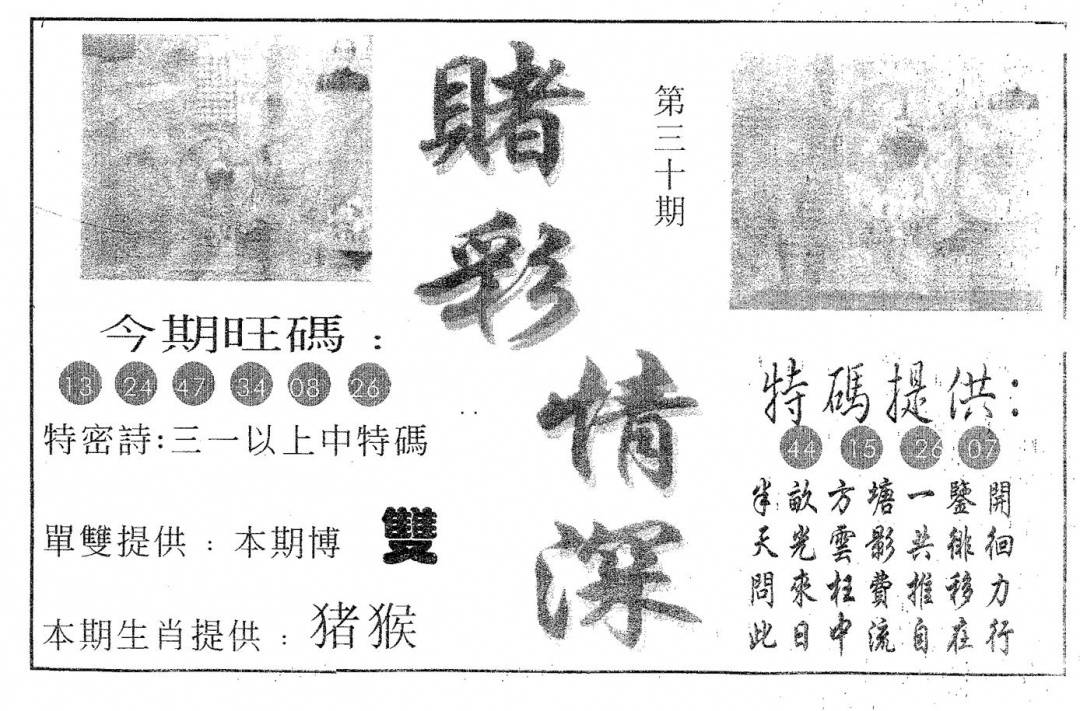 賭彩情深
第三十期
今期旺碼：
13 24 47 34 08 26
特密詩:三一以上中特碼
單雙提供：本期博 雙
本期生肖提供：猪猴
特碼提供:
44 15 26 07
半畝方塘一鑒開
天光雲影共徘徊
問來枉費推移力
此日中流自在行